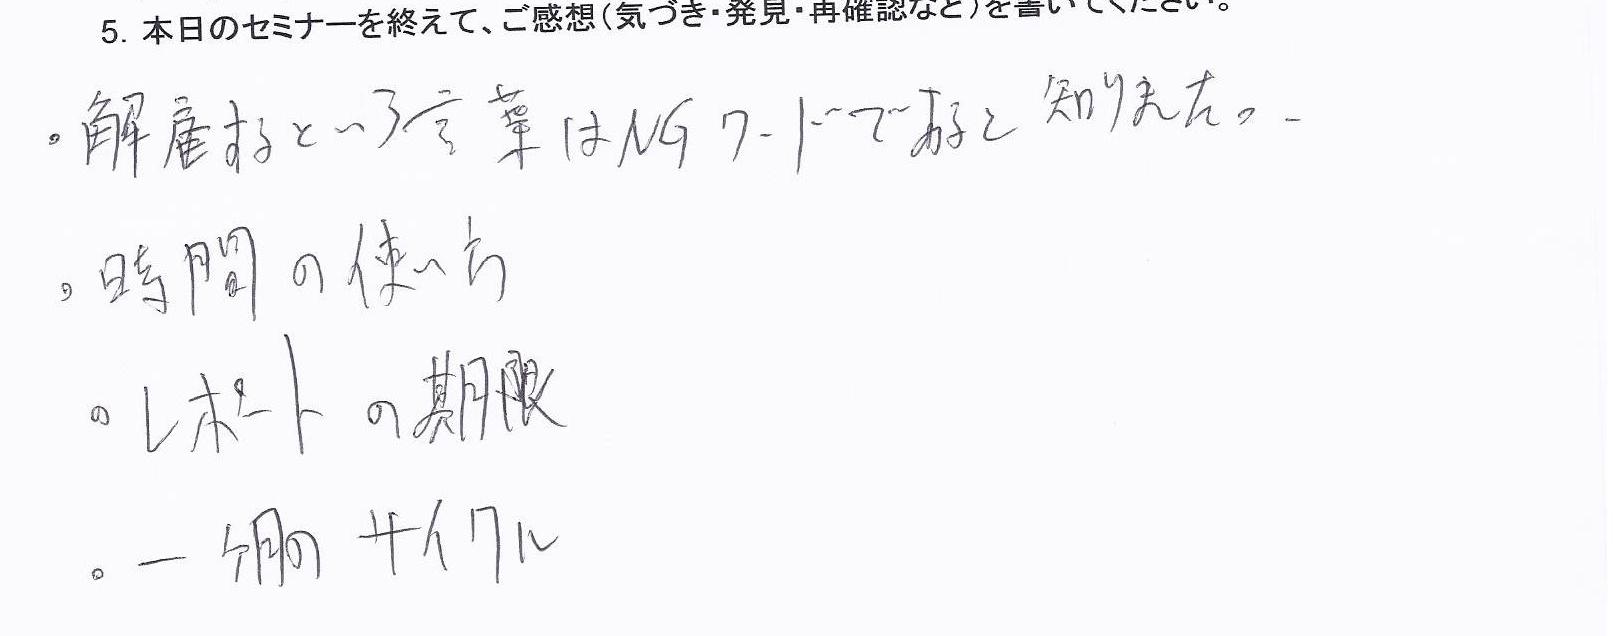 5. 本日のセミナーを終えて、ご感想(気づき・発見・再確認など)を書いてください。
。解雇するという言葉はNGワードであると知りました。
。時間の使い方
。レポートの期限
。一ヶ月のサイクル